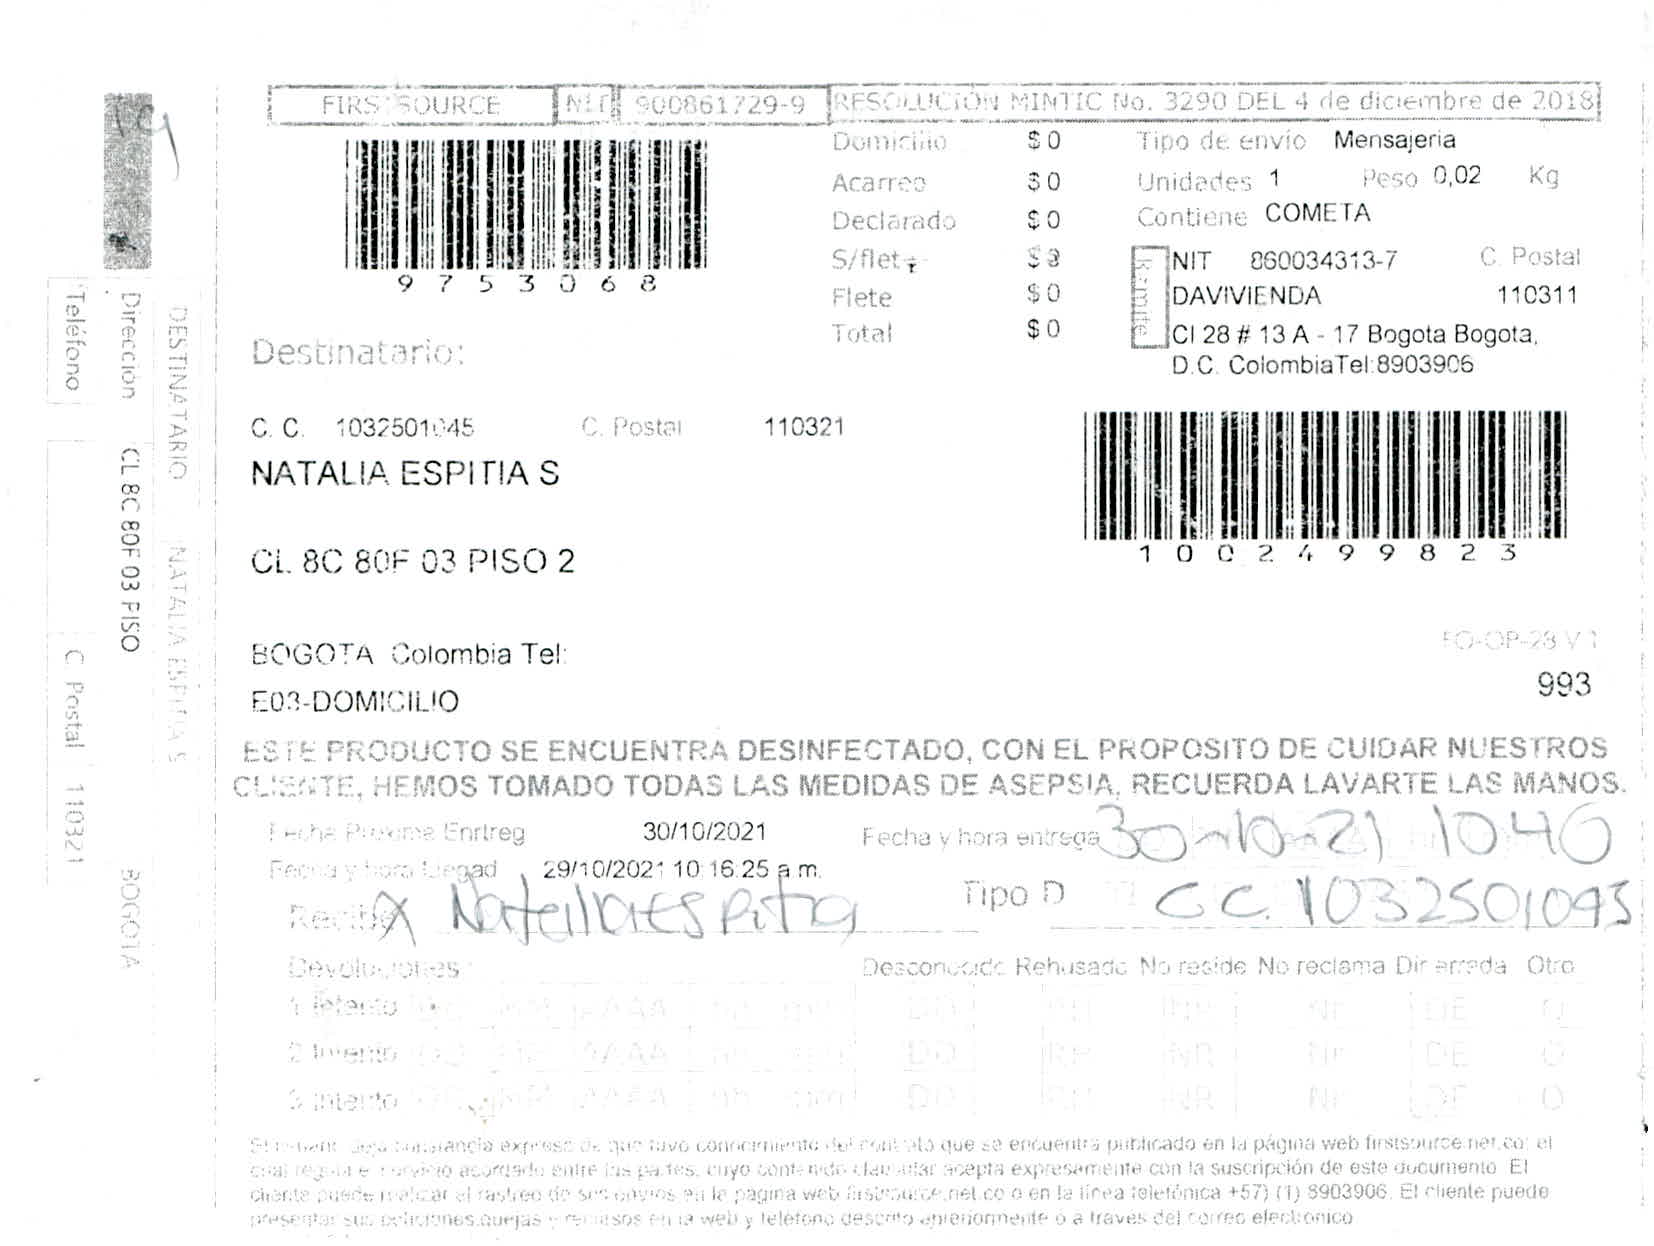 FIRSTSOURCE NIT 900861729-9 RESOLUCION MINTIC No. 3290 DEL 4 de diciembre de 2018
9753068
Domicilio $ 0
Acarreo $ 0
Declarado $ 0
S/flete
Flete $ 0
Total $ 0
Tipo de envio Mensajeria
Unidades 1 Peso 0,02 Kg
Contiene COMETA
Remitente
NIT 860034313-7 C. Postal
DAVIVIENDA 110311
Cl 28 # 13 A - 17 Bogota Bogota,
D.C. ColombiaTel:8903906
1002499823
Destinatario:
C. C. 1032501045 C. Postal 110321
NATALIA ESPITIA S
CL 8C 80F 03 PISO 2
BOGOTA Colombia Tel:
E03-DOMICILIO
FO-OP-28 V 1
993
ESTE PRODUCTO SE ENCUENTRA DESINFECTADO, CON EL PROPOSITO DE CUIDAR NUESTROS
CLIENTE, HEMOS TOMADO TODAS LAS MEDIDAS DE ASEPSIA, RECUERDA LAVARTE LAS MANOS.
Fecha Proxima Enrtreg 30/10/2021 Fecha y hora entrega 30-10-21 1040
Fecha y hora Llegad 29/10/2021 10:16:25 a.m.
Recibe X Natalia Espitia Tipo D CC. 1032501093
Devoluciones Desconocido Rehusado No reside No reclama Dir errada Otro
1 Intento DD MM AAAA hh mm DO RH NR Nr DE O
2 Intento DD MM AAAA hh mm DO RH NR Nr DE O
3 Intento DD MM AAAA hh mm DO RH NR Nr DE O
constancia expresa de que tuvo conocimiento del contrato que se encuentra publicado en la página web firstsource.net.co; el
cual regula el servicio acordado entre las partes, cuyo contenido clausular acepta expresamente con la suscripción de este documento. El
cliente puede realizar el rastreo de sus envios en la pagina web firstsource.net.co o en la línea telefónica +57) (1) 8903906. El cliente puede
presentar sus peticiones, quejas y recursos en la web y teléfono descrito anteriormente o a través del correo electronico
DESTINATARIO NATALIA ESPITIA S
Dirección CL 8C 80F 03 PISO BOGOTA
Teléfono C Postal 110321